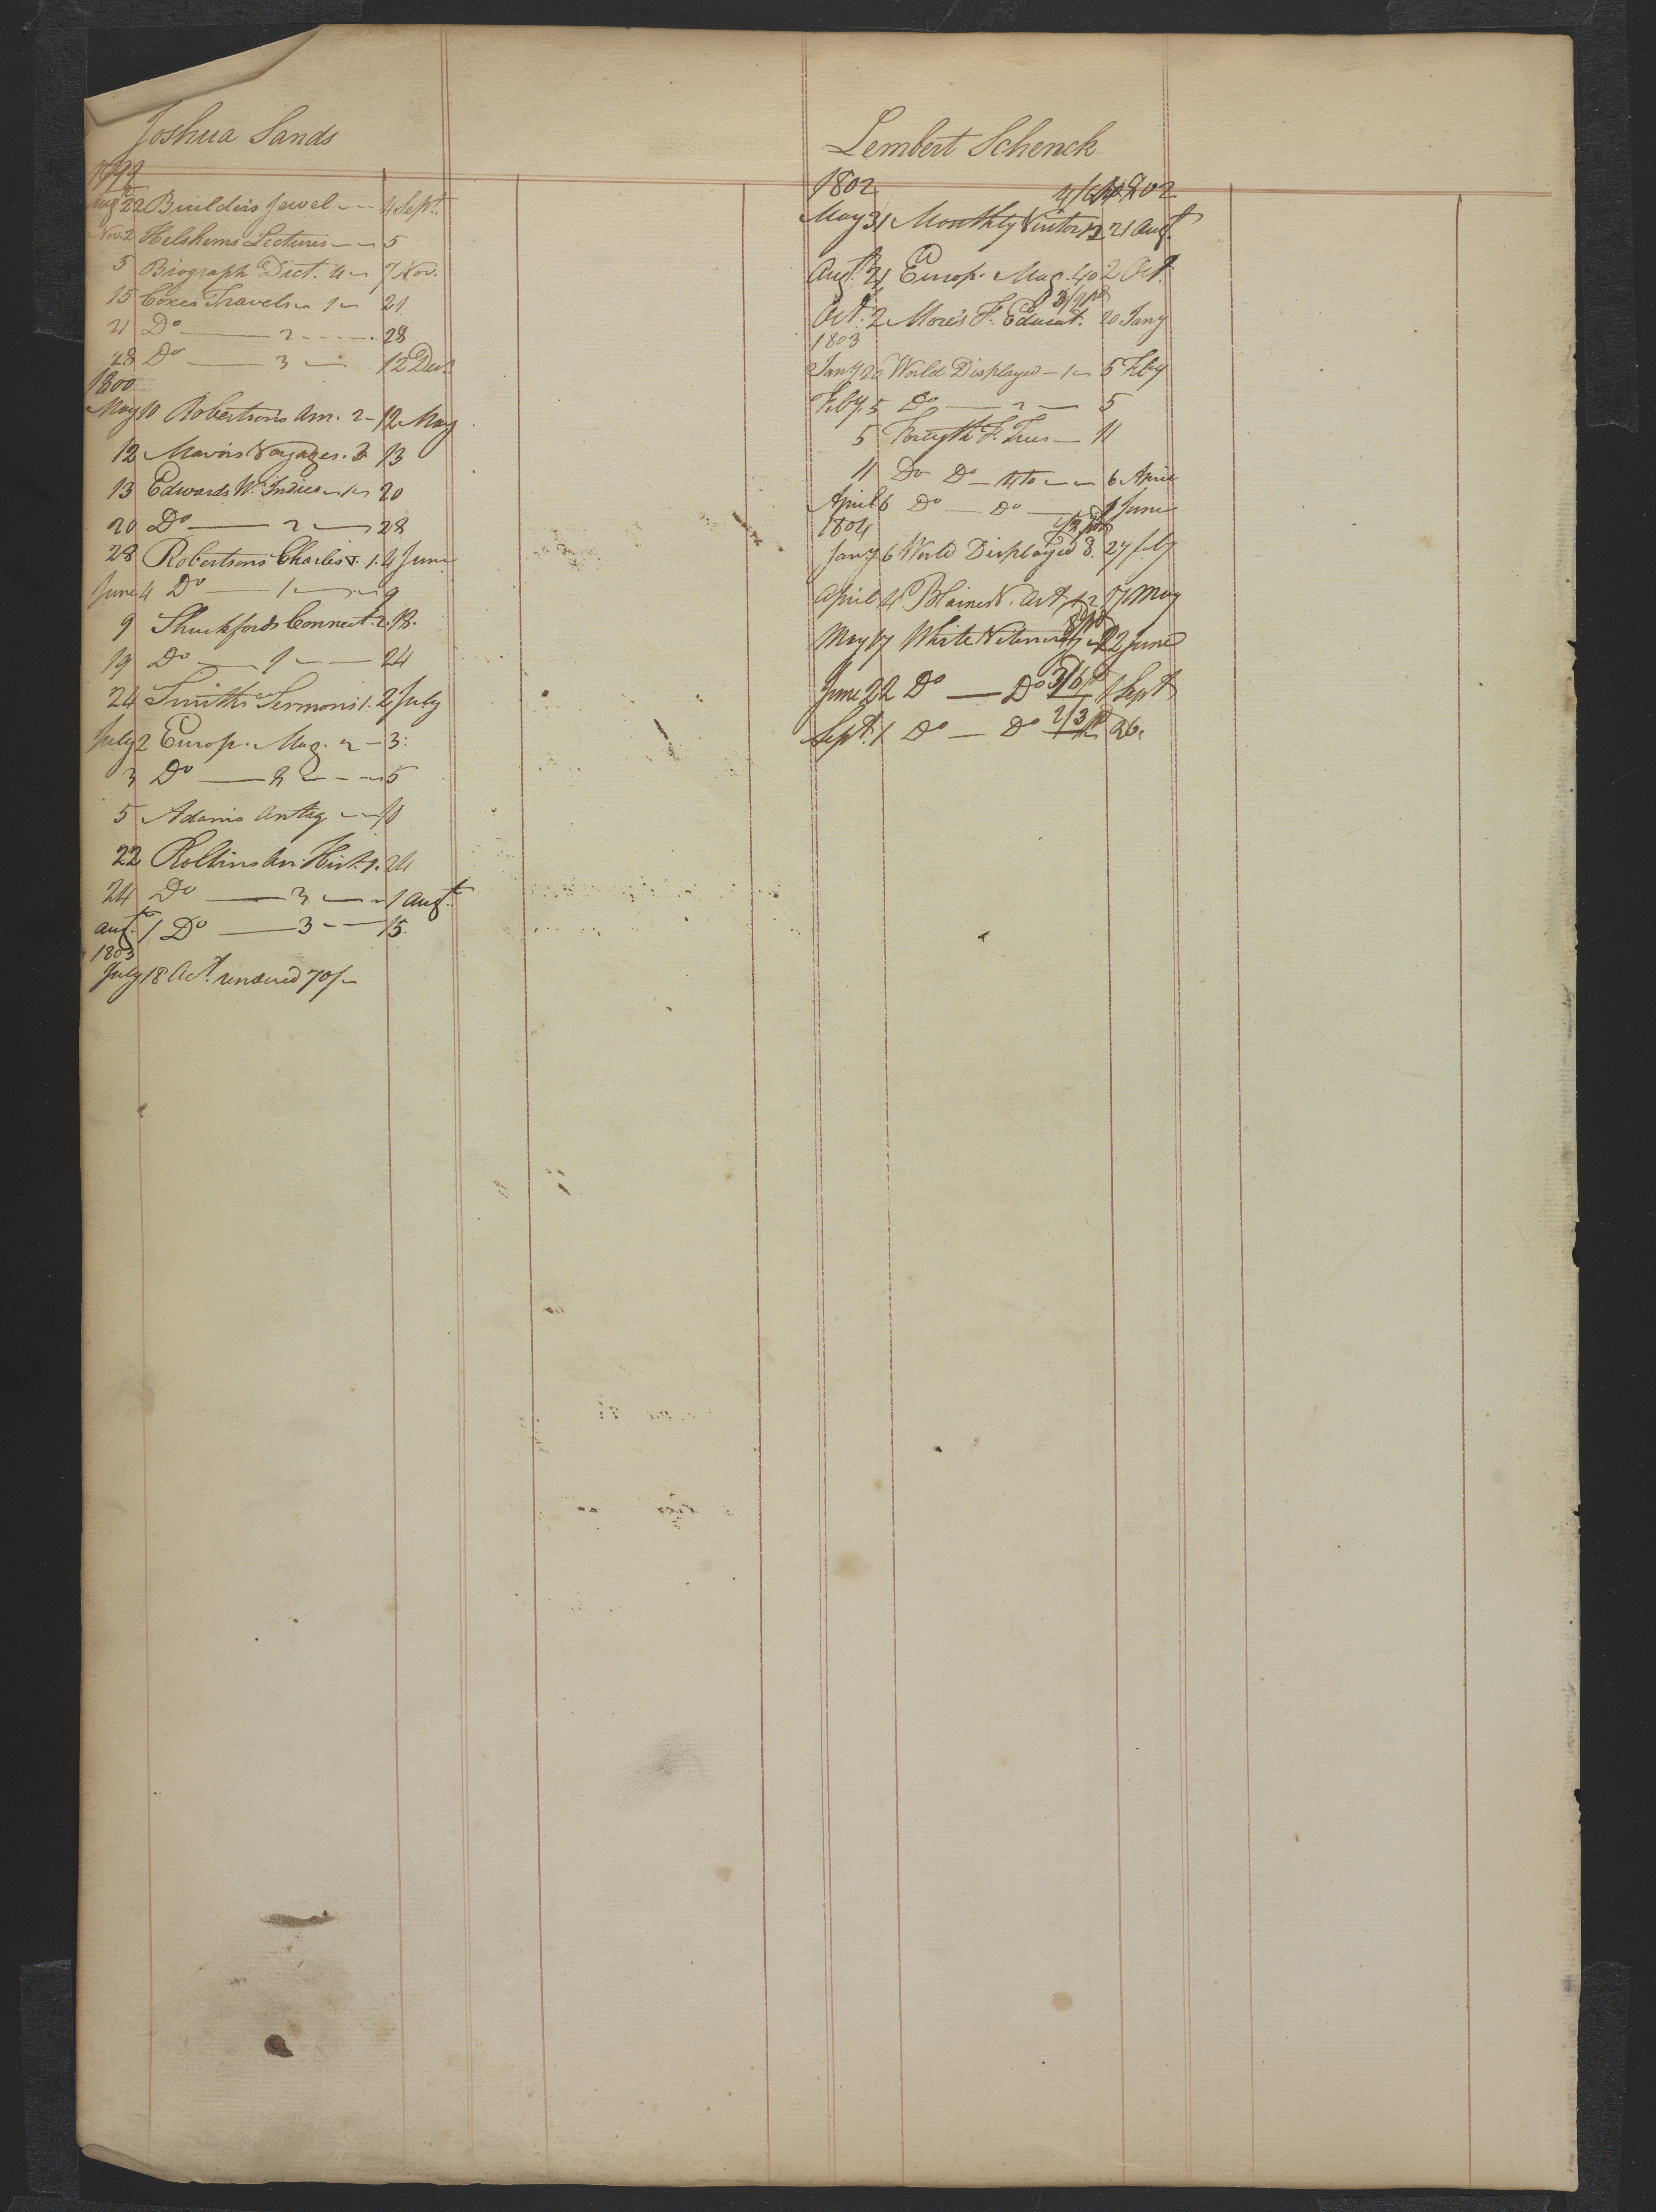 Joshua Sands
1799
Augt 22 Builders Jewel 4 Sept.
Nov. 2 Helshems Lectures 5
5 Biograph Dict. 4 7 Nov.
15 Coxes Travels 1 21
21 Do 2 28
28 Do 3 12 Decr.
1800
May 10 Robertsons Am. 2 12 May
12 Mavors Voyages. 13
13 Edwards W. Indies 1 20
20 Do 2 28
28 Robertsons Charles V. 1. 4 June
June 4 Do 1 9
9 Shuckfords Connect. 2. 18.
19 Do 1 24
24 Smiths Sermons 1. 2 July
July 2 Europ. Mag. 2 3.
3 Do 5
5 Adams Antiq
22 Rollins An. Hist. 1. 24
24 Do 3 1 Augt.
Augt. 1 Do 3 15.
1803
July 18 Act. rendered 70/
Lembert Schenck
1802
May 31 Monthly Visitor 12 21 Augt.
Augt. 21 Europ. Mag. 40 2 Oct.
3/9 pd
Oct. 2 More's F. Educat. 20 Jany
1803
Jany 20 World Displayed 1 5 Feby
Feby. 5 Do 2 5
5 Forsyth F. Trees 11
11 Do Do 4to 6 April
April 6 Do Do 1 June
1804
Jany 6 World Displayed 8. 27 feby
April 4 Blaines V. Art 1.2 17 May
May 17 White Veterinary 22 June
June 22 Do Do 3/6 pd 1 Sept
Sept. 1 Do Do 2/3 pd 26.